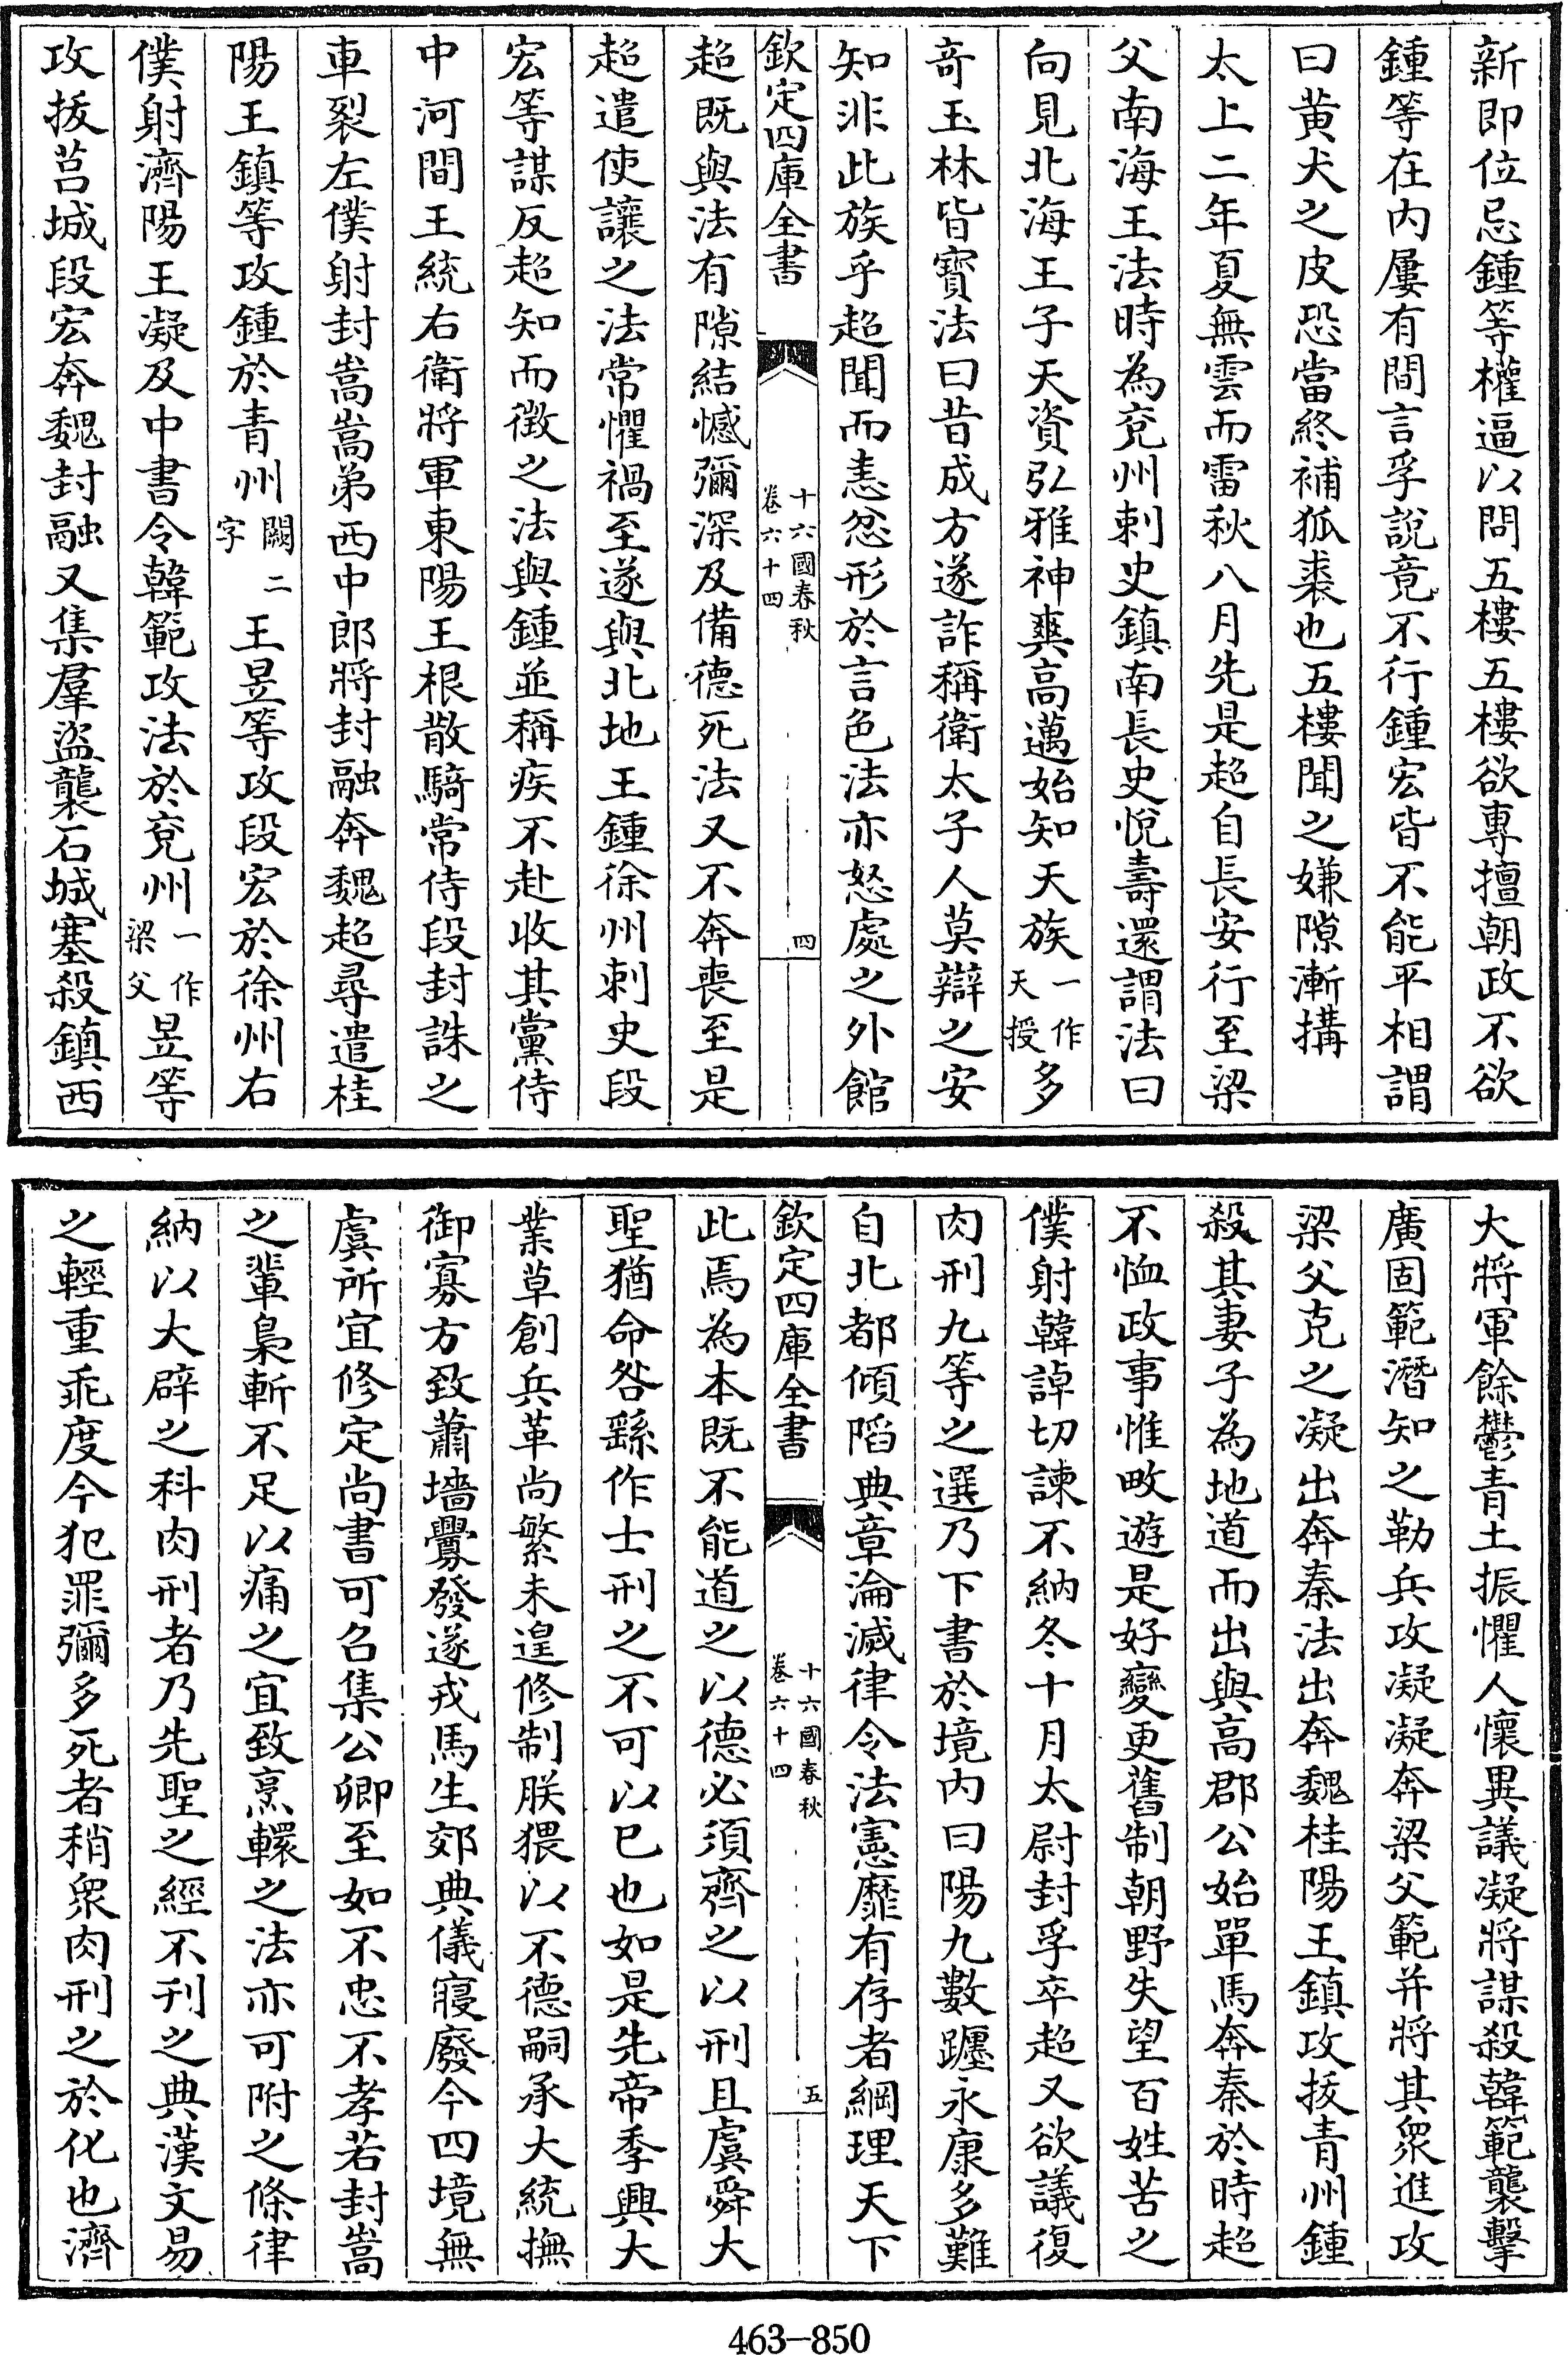 新即位忌鍾等權逼以問五樓五樓欲專擅朝政不欲
鍾等在内屢有間言孚說竟不行鍾宏皆不能平相謂
曰黄犬之皮恐當終補狐裘也五樓聞之嫌隙漸搆
太上二年夏無雲而雷秋八月先是超自長安行至梁
父南海王法時為兖州刺史鎮南長史悅壽還謂法曰
向見北海王子天資弘雅神爽高邁始知天族一作天授多
竒玉林皆寶法曰昔成方遂詐稱衛太子人莫辯之安
知非此族乎超聞而恚忿形於言色法亦怒處之外館
欽定四庫全書
十六國春秋
卷六十四
四
超既與法有隙結憾彌深及備德死法又不奔喪至是
超遣使讓之法常懼禍至遂與北地王鍾徐州刺史段
宏等謀反超知而徵之法與鍾並稱疾不赴收其黨侍
中河間王統右衛將軍東陽王根散騎常侍段封誅之
車裂左僕射封嵩嵩弟西中郎將封融奔魏超尋遣桂
陽王鎮等攻鍾於青州闕二字王昱等攻段宏於徐州右
僕射濟陽王凝及中書令韓範攻法於兖州一作梁父昱等
攻拔莒城段宏奔魏封融又集羣盜襲石城塞殺鎮西
大將軍餘鬱青土振懼人懷異議凝將謀殺韓範襲擊
廣固範潛知之勒兵攻凝凝奔梁父範并將其衆進攻
梁父克之凝出奔秦法出奔魏桂陽王鎮攻拔青州鍾
殺其妻子為地道而出與高郡公始單馬奔秦於時超
不恤政事惟畋遊是好變更舊制朝野失望百姓苦之
僕射韓諱切諫不納冬十月太尉封孚卒超又欲議復
肉刑九等之選乃下書於境内曰陽九數躔永康多難
自北都傾陷典章淪滅律令法憲靡有存者綱理天下
欽定四庫全書
十六國春秋
卷六十四
五
此焉為本既不能道之以德必須齊之以刑且虞舜大
聖猶命咎繇作士刑之不可以已也如是先帝季興大
業草創兵革尚繁未遑修制朕猥以不德嗣承大統撫
御寡方致蕭墻釁發遂戎馬生郊典儀寢廢今四境無
虞所宜修定尚書可召集公卿至如不忠不孝若封嵩
之輩梟斬不足以痛之宜致烹轘之法亦可附之條律
納以大辟之科肉刑者乃先聖之經不刊之典漢文易
之輕重乖度今犯罪彌多死者稍衆肉刑之於化也濟
463-850